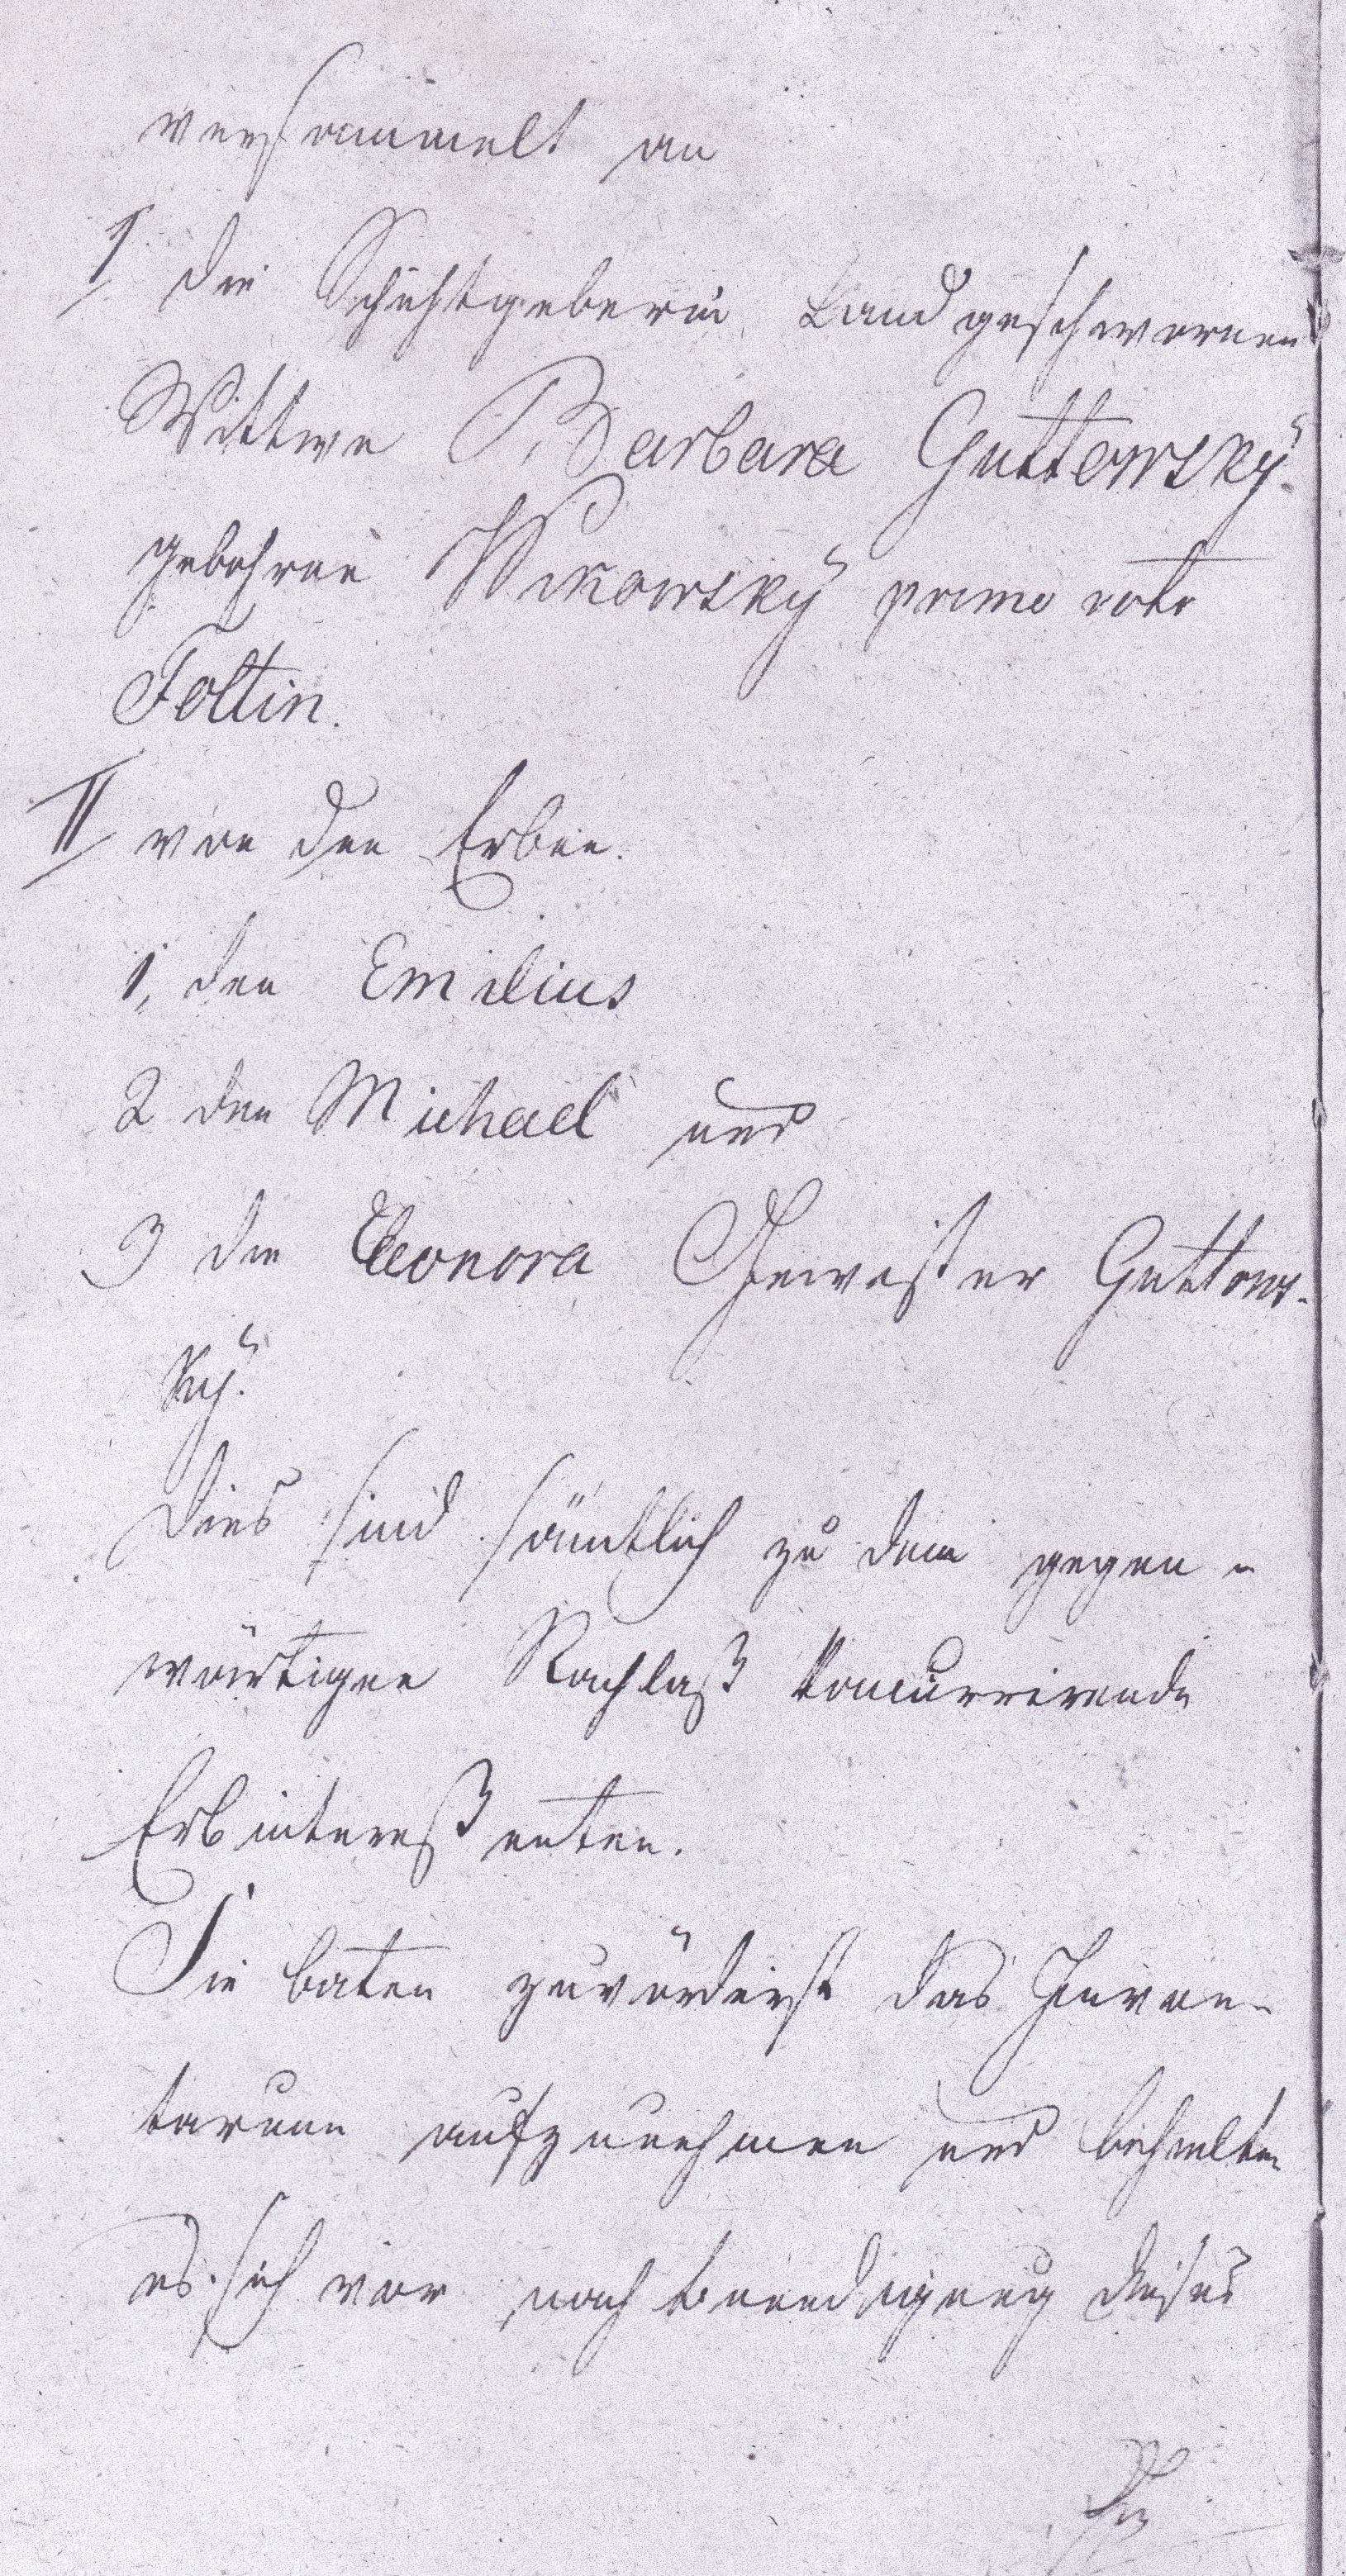 versammelt an
I die Schichtgeberin Land geschwornen
Wittwe Barbara Guttowsky
gebohrne prime voto
Foltin.
II von den Erben.
1, den Emilius
2 den Michael und
3 die Eleonora Gewister Guttow-
sky.
Dies sind sämtlich zu dem gegen-
wärtigen Nachlaß koncurrirende
Erbintereßenten.
Sie baten zuvörderst das Inven-
tarium aufzunehmen und behielten
es sich vor nach beendigung dieses